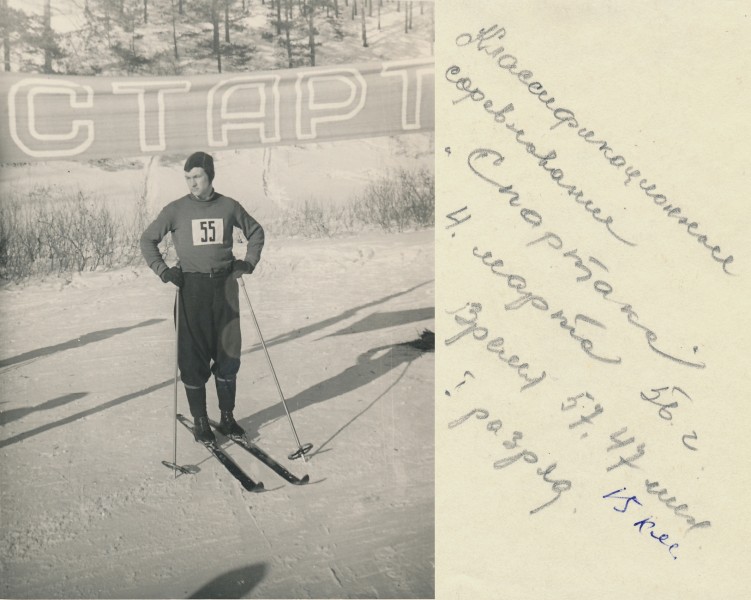 СТАРТ
55
Классификационные
соревнования
„Спартака".
4. марта 56. г.
Время 57.47 мин
I разряд.
15 км.